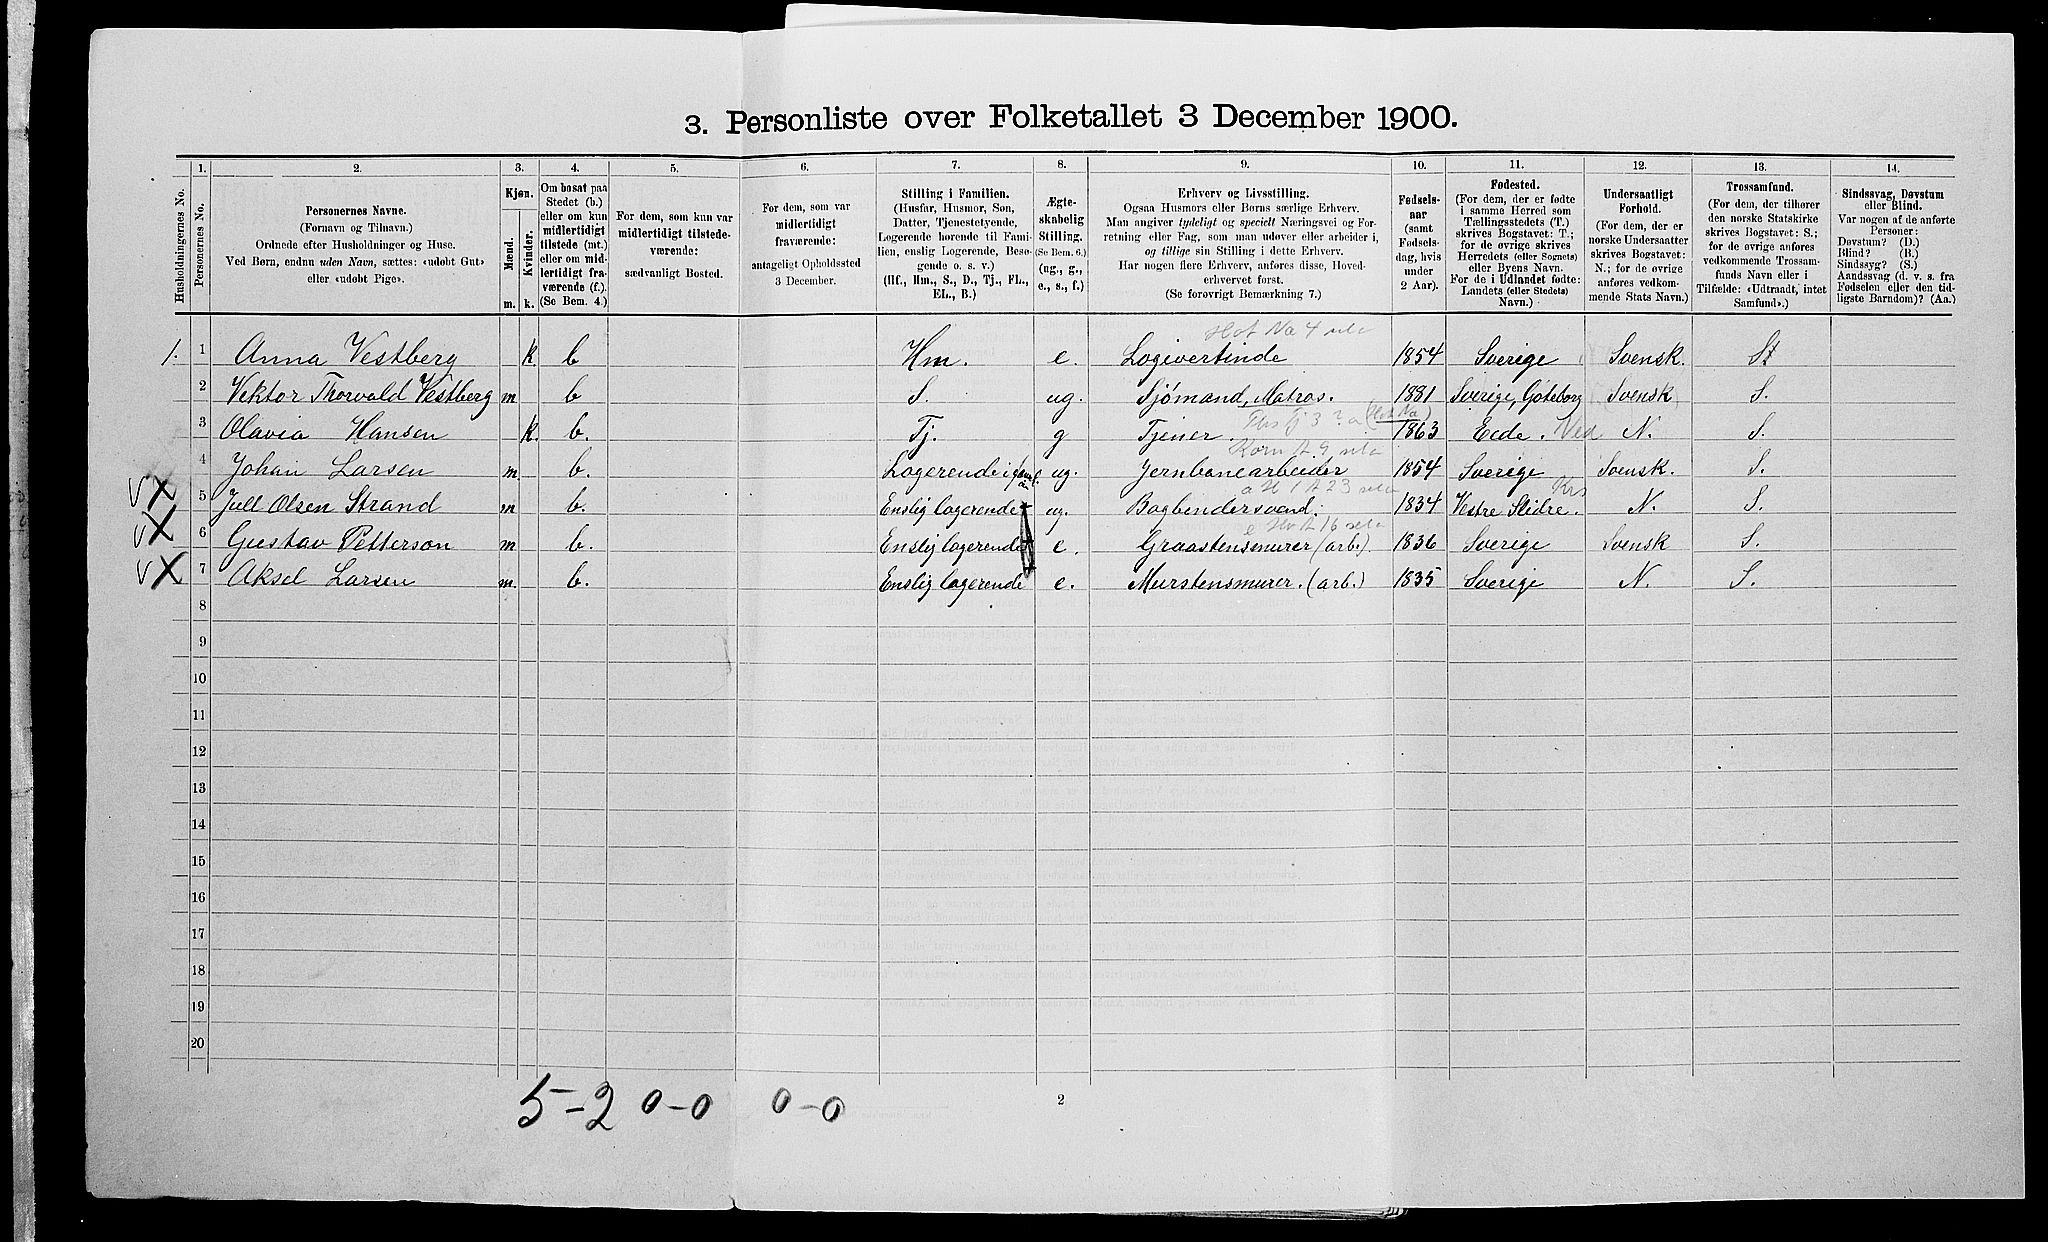 3. Personliste over Folketallet 3 December 1900.
1. 2. 3. 4. 5. 6. 7. 8. 9. 10. 11. 12. 13. 14.
Husholdningernes No.
Personernes No.
Personernes Navne.
(Fornavn og Tilnavn.)
Ordnede efter Husholdninger og Huse.
Ved Børn, endnu uden Navn, sættes: «udøbt Gut»
eller «udøbt Pige».
Kjøn.
Mænd.
Kvinder.
m. k.
Om bosat paa
Stedet (b.)
eller om kun
midlertidigt
tilstede (mt.)
eller om mid-
lertidigt fra-
værende (f.).
(Se Bem. 4.)
For dem, som kun var
midlertidigt tilstede-
værende:
sædvanligt Bosted.
For dem, som var
midlertidigt
fraværende:
antageligt Opholdssted
3 December.
Stilling i Familien.
(Husfar, Husmor, Søn,
Datter, Tjenestetyende,
Logerende hørende til Fami-
lien, enslig Logerende, Besø-
gende o. s. v.)
(Hf., Hm., S., D., Tj., FL.,
EL., B.)
Ægte-
skabelig
Stilling.
(Se Bem. 6.)
(ug., g.,
e., s., f.)
Erhverv og Livsstilling.
Ogsaa Husmors eller Børns særlige Erhverv.
Man angiver tydeligt og specielt Næringsvei og For-
retning eller Fag, som man udøver eller arbeider i,
og tillige sin Stilling i dette Erhverv.
Har nogen flere Erhverv, anføres disse, Hoved-
erhvervet først.
(Se forøvrigt Bemærkning 7.)
Fødsels-
aar
(samt
Fødsels-
dag, hvis
under
2 Aar).
Fødested.
(For dem, der er fødte
i samme Herred som
Tællingsstedets (T.)
skrives Bogstavet: T.;
for de øvrige skrives
Herredets (eller Sognets)
eller Byens Navn.
For de i Udlandet fødte:
Landets (eller Stedets)
Navn.)
Undersaatligt
Forhold.
(For dem, der er
norske Undersaatter
skrives Bogstavet:
N.; for de øvrige
anføres vedkom-
mende Stats Navn.)
Trossamfund.
(For dem, der tilhører
den norske Statskirke
skrives Bogstavet: S.;
for de øvrige anføres
vedkommende Trossam-
funds Navn eller i
Tilfælde: «Udtraadt, intet
Samfund».)
Sindssvag, Døvstum
eller Blind.
Var nogen af de anførte
Personer:
Døvstum? (D.)
Blind? (B.)
Sindssyg? (S.)
Aandssvag (d. v. s. fra
Fødselen eller den tid-
ligste Barndom)? (Aa.)
1. 1 Anna Vestberg k. b Hm. e. Logivertinde 1854 Sverige Svensk. St
2 Vektor Thorvald Vestberg m b S. ug. Sjömand, Matros. 1881 Sverige, Göteborg Svensk S.
3 Olavia Hansen k. b. Tj. g Tjener. 1863 Eede. N. S.
4 Johan Larsen m. b. Logerende i fam. ug. Jernbanearbeider 1854 Sverige Svensk. S.
5 Jull Olsen Strand m b. Enslig logerende ug. Bogbindersvend. 1834 Vestre Slidre. N. S.
6 Gustav Petterson m b. Enslig logerende e. Graastensmurer (arb.). 1836 Sverige Svensk S.
7 Aksel Larsen m. b. Enslig logerende e. Murstensmurer. (arb.) 1835 Sverige N. S.
8
9
10
11
12
13
14
15
16
17
18
19
20
5-2 0-0 0-0
2